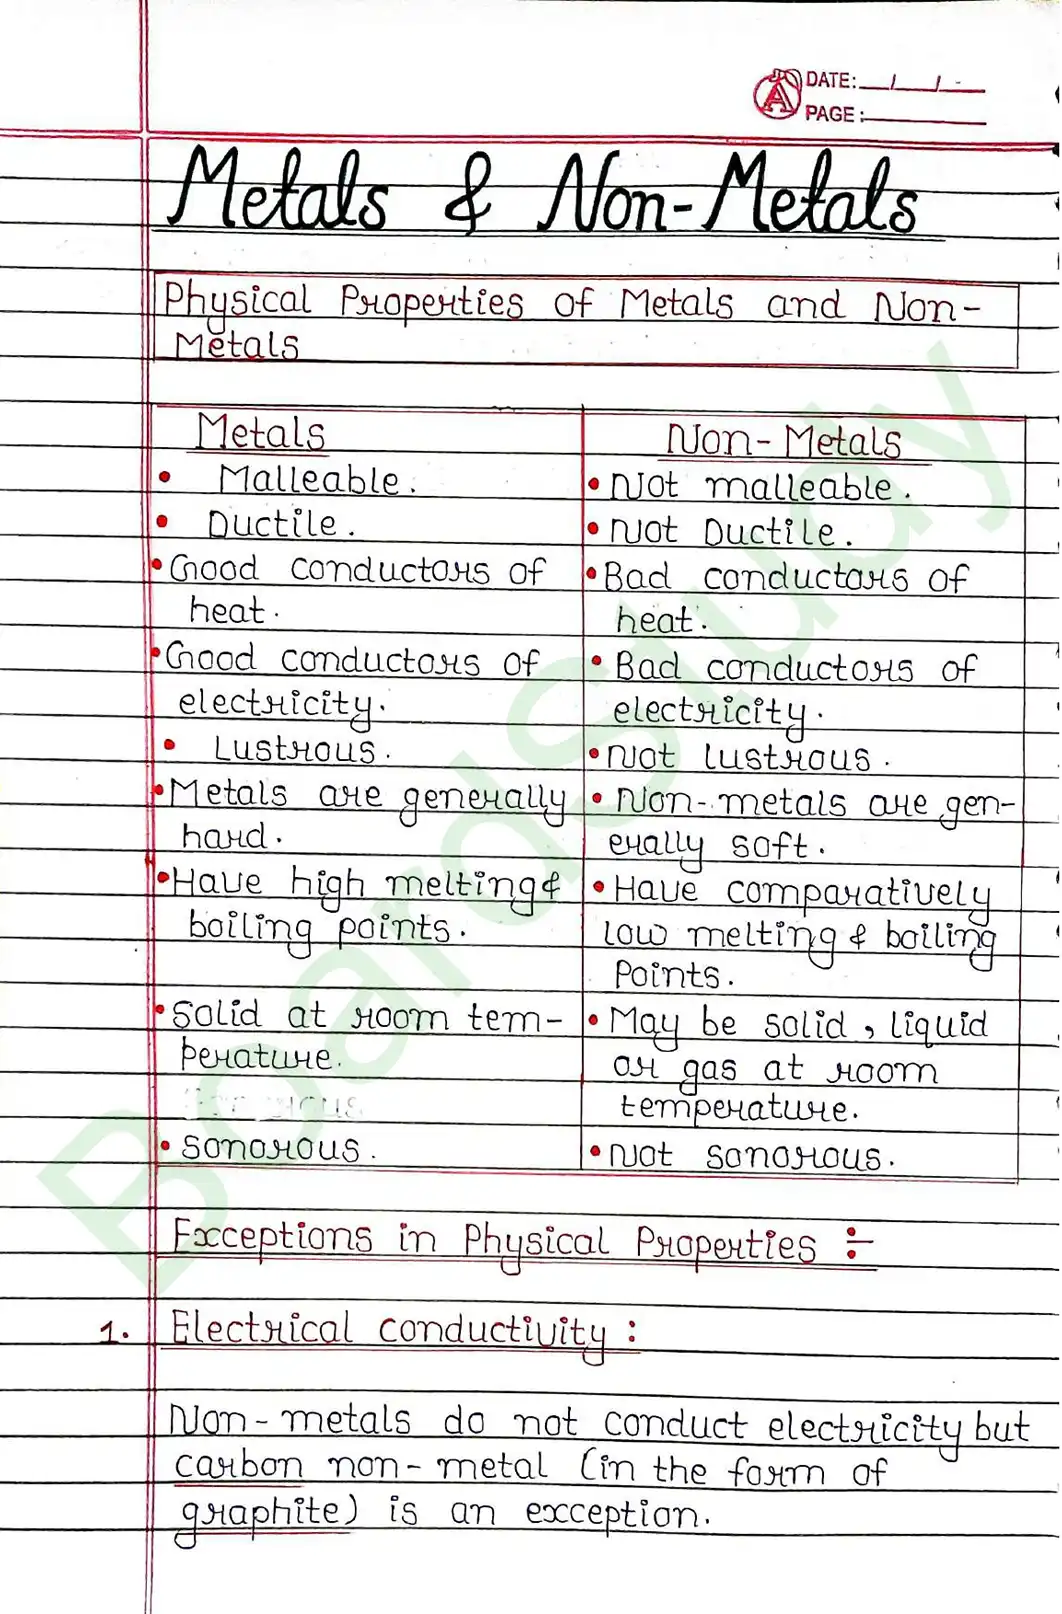 DATE: __/__/__
PAGE: ______
Metals & Non-Metals
Physical Properties of Metals and Non-
Metals
Metals
• Malleable.
• Ductile.
• Good conductors of
heat.
• Good conductors of
electricity.
• Lustrous.
• Metals are generally
hard.
• Have high melting &
boiling points.
• Solid at room tem-
perature.
• Sonorous.
Non-Metals
• Not malleable.
• Not Ductile.
• Bad conductors of
heat.
• Bad conductors of
electricity.
• Not lustrous.
• Non-metals are gen-
erally soft.
• Have comparatively
low melting & boiling
Points.
• May be solid, liquid
or gas at room
temperature.
• Not sonorous.
Exceptions in Physical Properties :-
1. Electrical conductivity :
Non-metals do not conduct electricity but
carbon non-metal (in the form of
graphite) is an exception.
BoardStudy